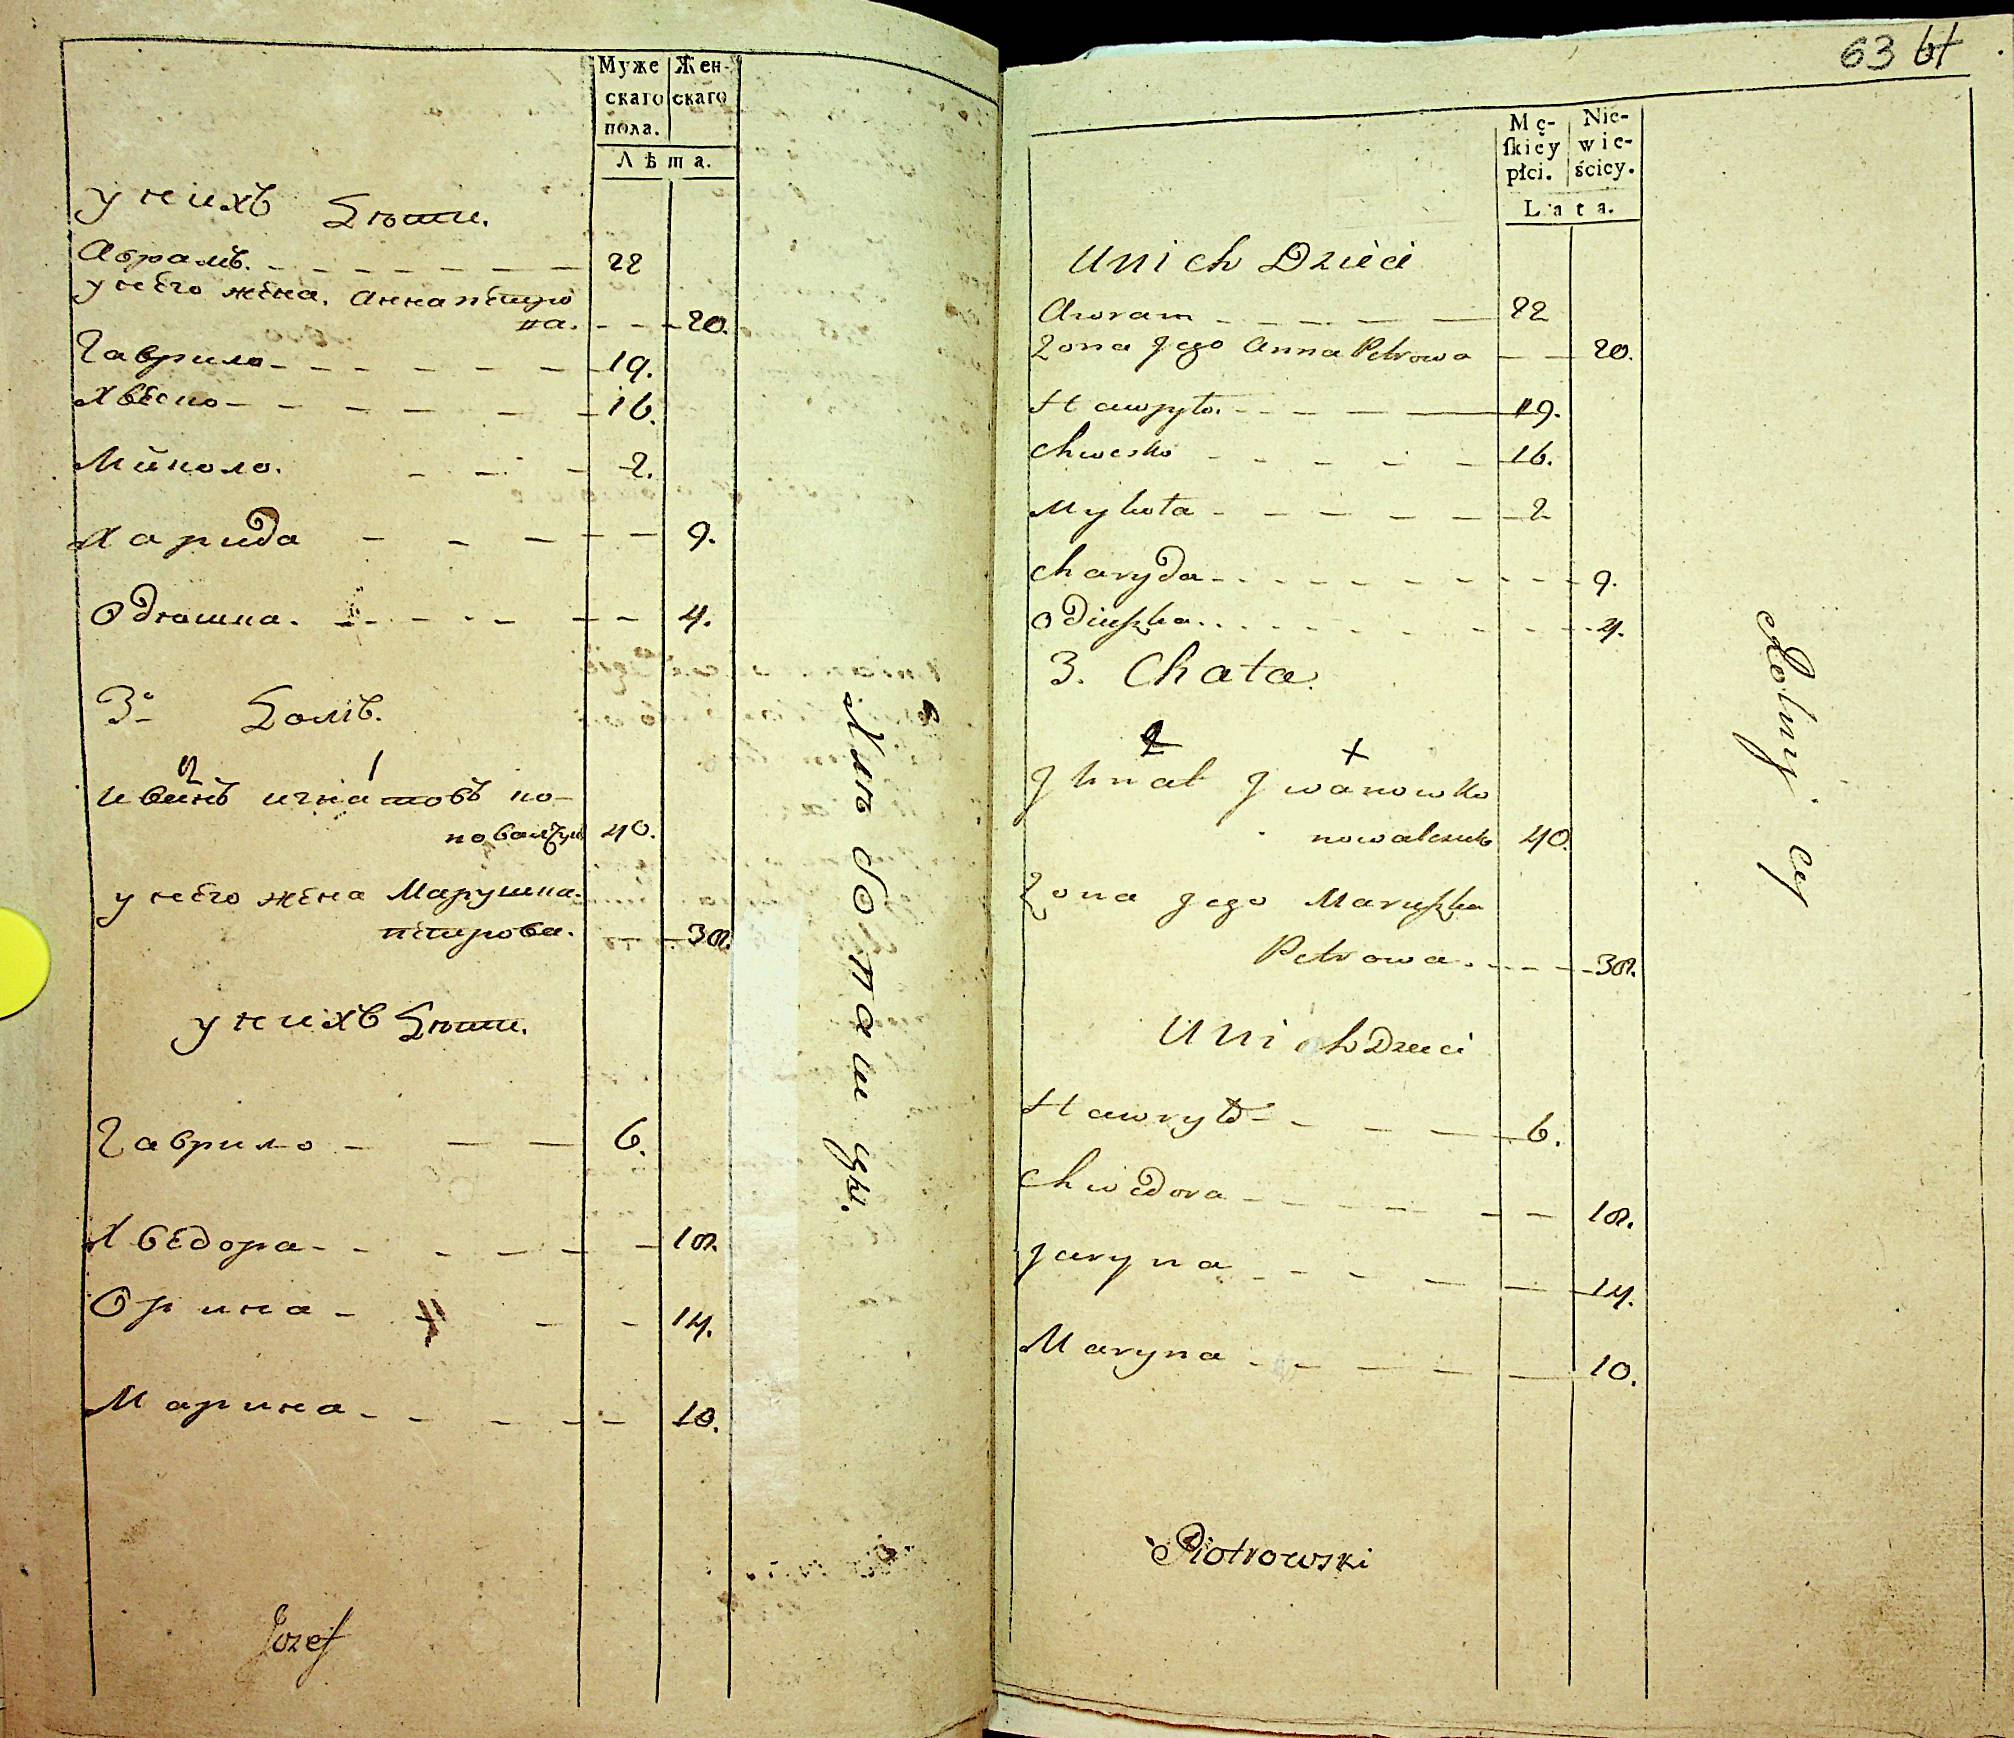 Муже
скаго
пола.
Жен-
скаго
Лѣта.
у нихъ Дѣти.
Абрамъ. 22
у него жена. Анна петро
ва. 20.
Гаврило 19.
Хвеско 16.
Миколо. 2.
Харида 9.
Одюшка. 4.
3о Домъ.
2 1
Иванъ игнатовъ ко-
новалчук 40.
у него жена Марушка
петрова. 38.
у нихъ Дѣти.
Гаврило 6.
Хведора 18.
Орина 14.
Марина 10.
Хлѣбопашцы.
Jozef
63
Mę-
ſkiey
płci.
Nie-
wie-
ściey.
Lata.
U nich Dzieci
Awram 22
Zona Jego Anna Petrowa 20.
Hawryło. 19.
Chwesko 16.
Mykoła 2
Charyda 9.
Odiuszka 4.
3. Chata.
2 +
Jhnat Jwanow Ko
nowalczuk 40.
Zona Jego Maruszka
Petrowa 38.
U nich Dzieci
Hawryło 6.
Chwedora 18.
Jaryna 14.
Maryna 10.
Rolnicy
Piotrowski